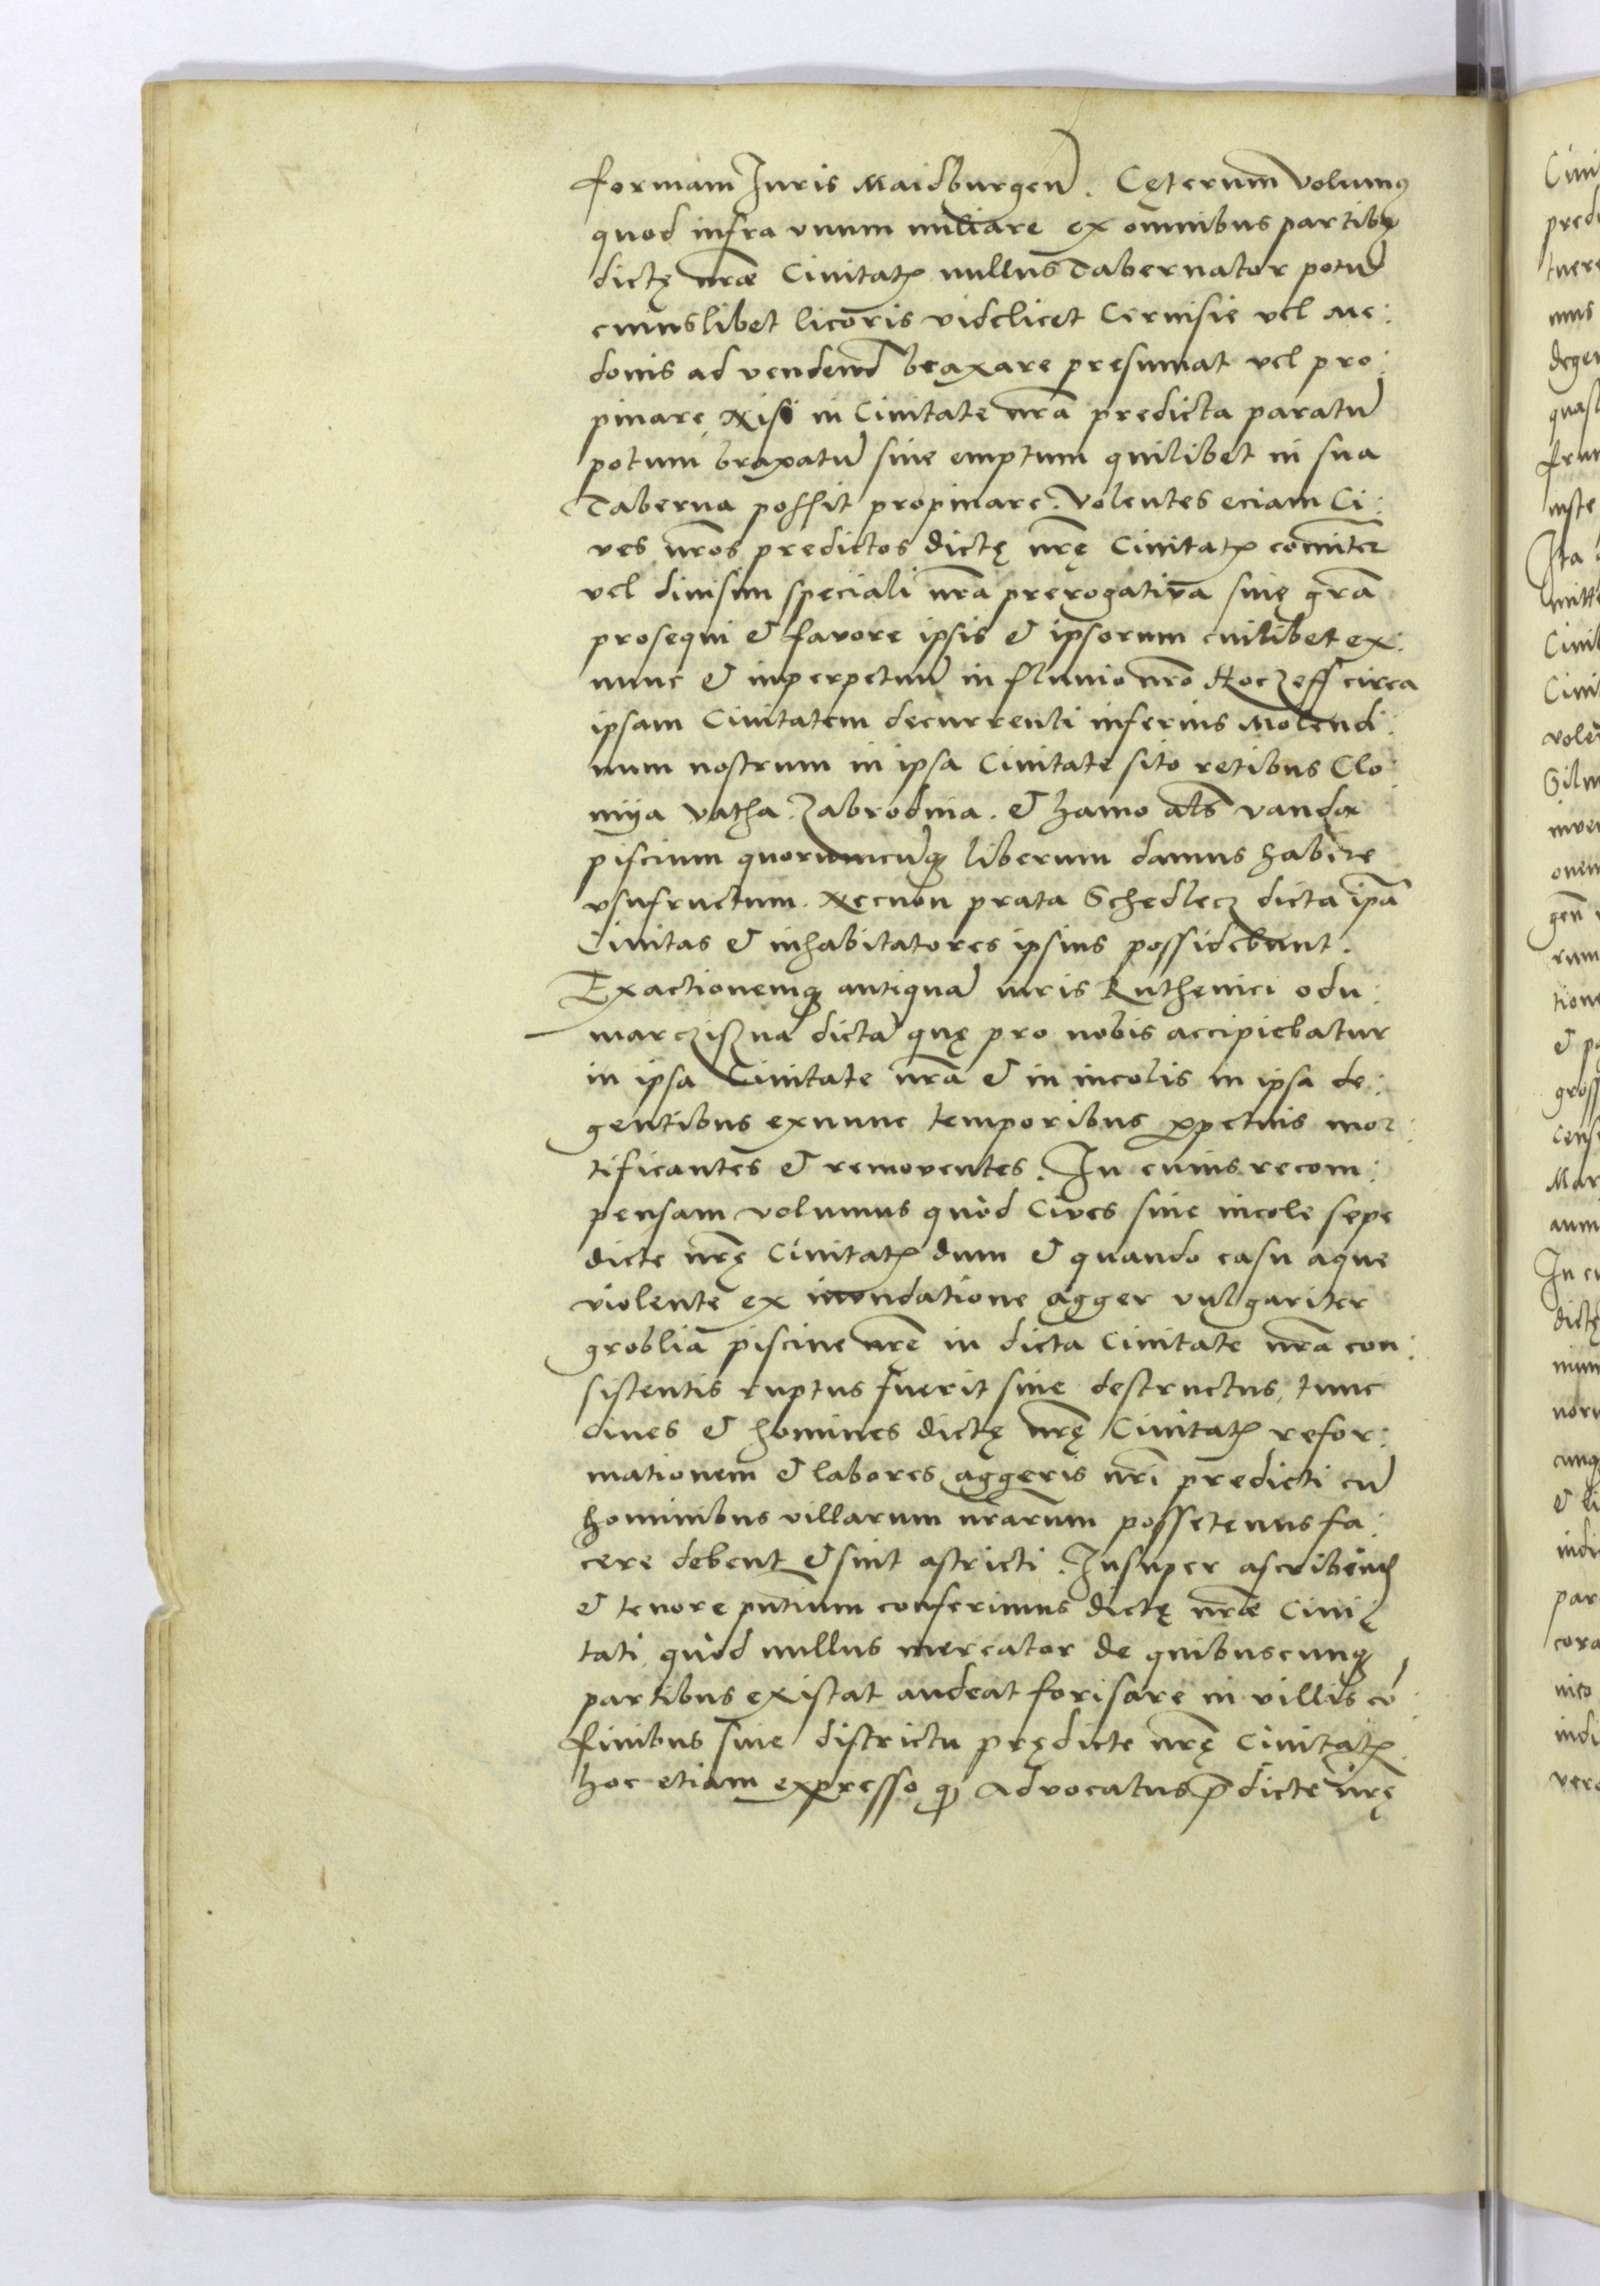 formam Iuris Maidburgen̄. Cęterum volumꝰ
quod infra vnum miliare ex omnibus partibꝰ
dictę nr̄ae Ciuitatꝭ nullus Tabernator potū
cuiuslibet licoris videlicet Ceruisie vel Me:
donis ad vendend̄ braxare presumat vel pro:
pinare, Nisi in Ciuitate nr̄a predicta paratū
potum braxatū siue emptum quilibet in sua
Taberna possit propinare. Volentes eciam Ci:
ves nr̄os predictos dictę nr̄ę Ciuitatꝭ com̄iter
vel diuisim speciali nr̄a prerogativa siuę gr̄a
prosequi & favore ipsis & ipsorum cuilibet ex:
nunc & inperpetuū in fluuio nr̄o Roczeff circa
ipsam Ciuitatem decurrenti inferius Molendi:
num nostrum in ipsa Ciuitate sito retibus Clo:
mija vatha. Zabrodnia. & hamo al̄s vanda
piscium quorumcūqꝫ liberum damus habere
vsufructum. Necnon prata Schedlecz dicta ip̄a
Ciuitas & inhabitatores ipsius possidebunt.
Exactionemqꝫ antiquā iuris Ruthenici odu:
marcziszna dictā quę pro nobis accipiebatur
in ipsa Ciuitate nr̄a & in incolis in ipsa de:
gentibus exnunc temporibus ꝑpetuis mor:
tificantes & removentes. In cuius recom:
pensam volumus quòd Cives siue incole sepe
dicte nr̄ę Ciuitatꝭ dum & quando casu aque
violente ex inundatione agger vulgariter
groblia piscine nr̄e in dicta Ciuitate nr̄a con:
sistentis ruptus fuerit siue destructus, tunc
ciues & homines dictę nr̄ę Ciuitatꝭ refor:
mationem & labores aggeris nr̄i predicti cū
hominibus villarum nr̄arum possetenus fa:
cere debent & sint astricti. Insuper ascribend̄
& tenore pn̄tium conferimus dictę nr̄ae Ciui:
tati, quòd nullus mercator de quibuscunqꝫ
partibus existat audeat forisare in villis cō
finibus siue districtu prędicte nr̄ę Ciuitatꝭ
hoc etiam expresso qꝫ Advocatus p̄dicte nr̄ę